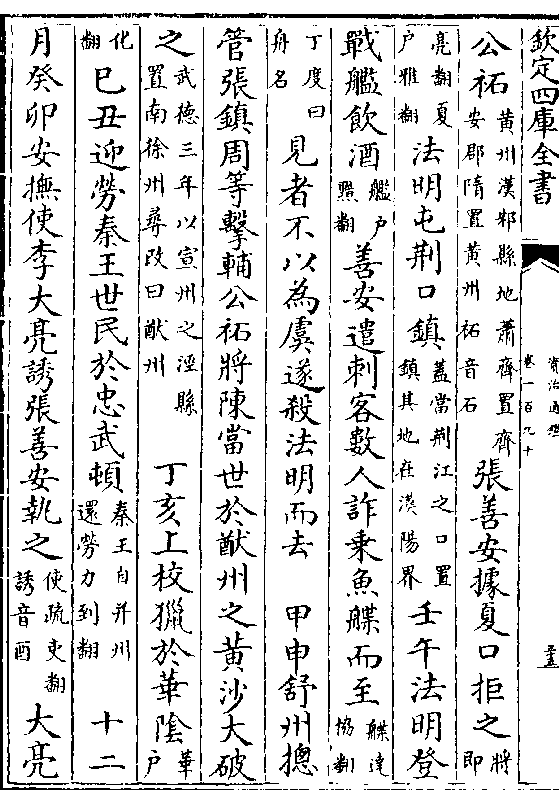 欽定四庫全書
資治通鑑
卷一百九十
公祏黃州漢邾縣地蕭齊置齊安郡隋置黃州祏音石張善安據夏口拒之將即
亮翻夏户雅翻法明屯荆口鎮蓋當荆江之口置鎮其地在漢陽界壬午法明登
戰艦飲酒艦户黯翻善安遣刺客數人詐乗魚艓而至艓達協翻
丁度曰舟名見者不以為虞遂殺法明而去 甲申舒州摠
管張鎮周等擊輔公祏將陳當世於猷州之黄沙大破
之武德三年以宣州之涇縣置南徐州尋改曰猷州 丁亥上校獵於華隂華户
化翻己丑迎勞秦王世民於忠武頓秦王自并州還勞力到翻 十二
月癸卯安撫使李大亮誘張善安執之使疏吏翻誘音酉大亮